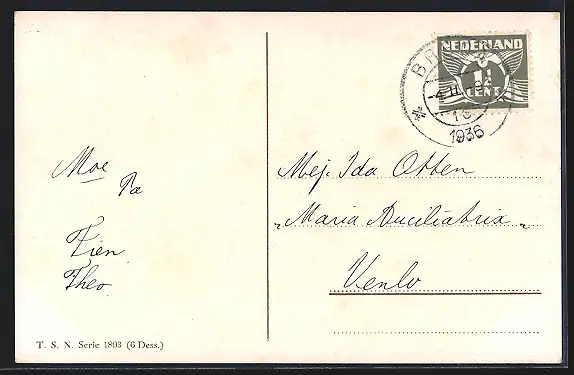 NEDERLAND
1½
CENT
BR
-4.II.19
1936
Moe
Pa
Zien
Theo
Mej. Ida Otten
„Maria Auciliatrix„
Venlo
T. S. N. Serie 1893 (6 Dess.)